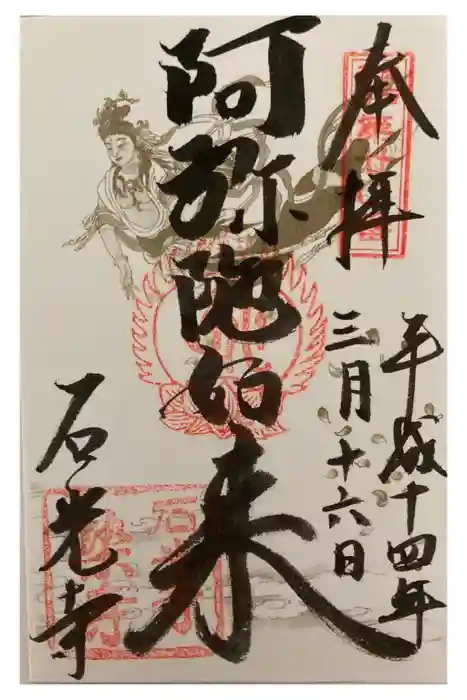 奉拝
平成十四年
三月十六日
阿弥陀如来
石光寺